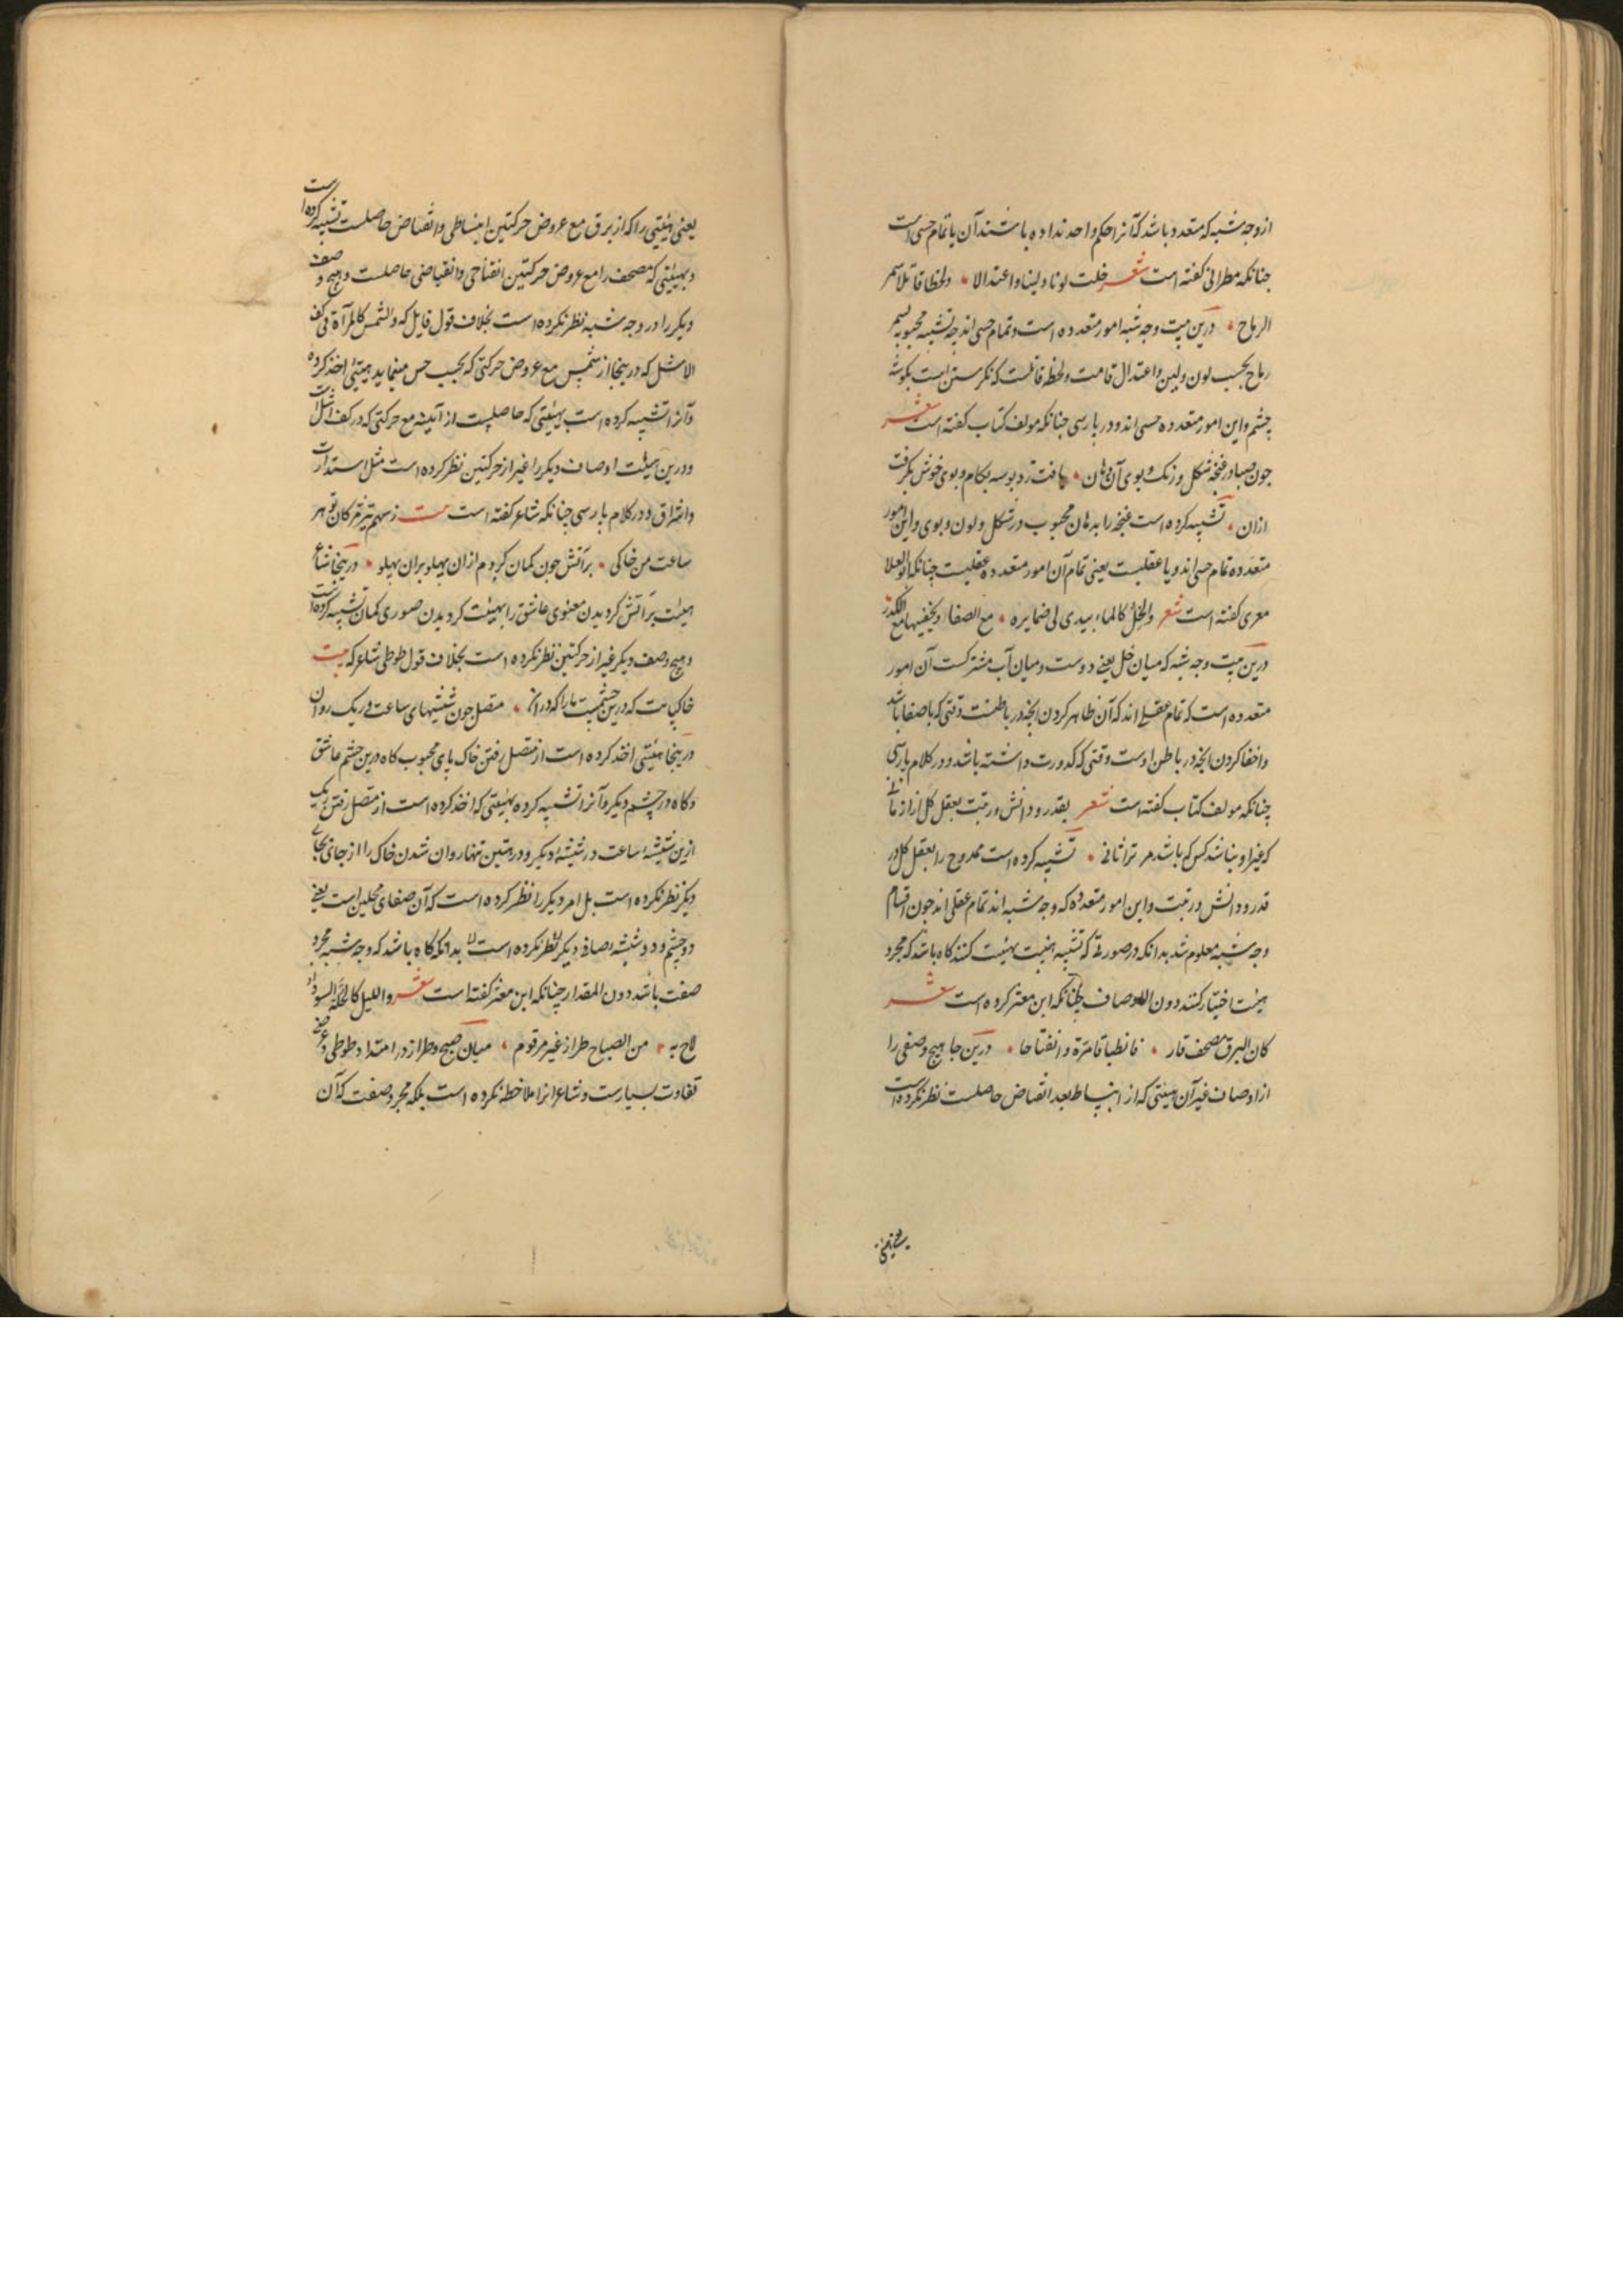 از وجه شبه که متعدد باشد که آنرا حکم واحد نداده باشند آن یا تمام حسی است
جنانکه مطرانی کفته است شعر خلت لونا ولینا واعتدالا ٭ ولحظا قاتلا سمر
الرماح ٭ درین بیت وجه شبه امور متعدده است وتمام حسی اند جه تشبیه محبوبه بسمر
رماح بحسب لون ولین واعتدال قامت ولحظه قاتلست که نکرستن است بکوشه
چشم واین امور متعدده حسی اند ودر پارسی جنانکه مولف کتاب کفته است شعر
جون صبا در غنچه شکل ورنک وبوی آن دهان ٭ یافت زد بوسه بکام وبوی خوش بکرفت
ازان ٭ تشبیه کرده است غنچه را بدهان محبوب در شکل ولون وبوی واین امور
متعدده تمام حسی اند ویا عقلیست یعنی تمام آن امور متعدده عقلیست جنانکه ابو العلا
معری کفته است شعر والخل کالماء یبدی لی ضمایره ٭ مع الصفاء ویخفیها مع الکدر
درین بیت وجه شبه که میان خل یعنی دوست ومیان آب مشترکست آن امور
متعدده است که تمام عقلی اند که آن ظاهر کردن انجه در باطنست وقتی که با صفا باشد
واخفا کردن انجه در باطن اوست وقتی که کدورت داشته باشد ودر کلام پارسی
چنانکه مولف کتاب کفته است شعر بقدر ودانش ورتبت بعقل کل از از
که غیر او نباشد کس که باشد مر ترا ثانی ٭ تشبیه کرده است ممدوح را بعقل کل در
قدر ودانش ورتبت واین امور متعدده که وجه شبه اند تمام عقلی اند جون اقسام
وجه شبه معلوم شد بدانکه در صورتی که تشبیه هیئت بهیئت کنند کاه باشد که مجرد
هیئت اختیار کنند دون الاوصاف جنانکه ابن معتز کرده است شعر
کان البرق مصحف قار ٭ فانطباقا مرة وانفتاحا ٭ درین جا هیچ وصفی را
از اوصاف غیر آن هیئتی که از انبساط بعد انقباض حاصلست نظر نکرده است
یعنی هیئتی
یعنی هیئتی را که از برق مع عروض حرکتین انبساطی وانقباض حاصلست تشبیه کرده است
وبهیئتی که مصحف را مع عروض حرکتین انفتاحی وانقباضی حاصلست وهیچ وصف
دیکر را در وجه شبه نظر نکرده است بخلاف قول قایل که والشمس کالمرآة فی کف
الاشل که درینجا از شمس مع عروض حرکتی که بحسب حس مینماید هیئتی اخذ کرده
وآنرا تشبیه کرده است بهیئتی که حاصلست از آیینه مع حرکتی که در کف اشل است
ودرین هیئت اوصاف دیکر را غیر از حرکتین نظر کرده است مثل استدارت
واشراق ودر کلام پارسی جنانکه شاعر کفته است بیت زسهم تیر مژکان تو هر
ساعت من خاکی ٭ بر آتش جون کمان کردم ازان پهلو بران پهلو ٭ درینجا شاعر
هیئت بر آتش کردیدن معنوی عاشق را بهیئت کردیدن صوری کمان تشبیه کرده است
وهیچ وصف دیکر غیر از حرکتین نظر نکرده است بخلاف قول طوطی شاعر که بیت
خاکپایت که درین چشمست ما را که دران ٭ متصل جون شیشهای ساعت در یک روان
درینجا هیئتی اخذ کرده است از متصل رفتن خاک پای محبوب کاه درین چشم عاشق
وکاه در چشم دیکر وآنرا تشبیه کرده بهیئتی که اخذ کرده است از متصل رفتن ریک
ازین شیشه ساعت در شیشه دیکر ودر هیئتین تنها روان شدن خاک را از جای بجای
دیکر نظر نکرده است بل امر دیکر را نظر کرده است که آن صفای محلین است یعنی
دو چشم ودو شیشه بصافی دیکر نظر نکرده است بدانکه کاه باشد که وجه شبه مجرد
صفت باشد دون المقدار چنانکه ابن معتز کفته است شعر واللیل کالحلة السوداء
لاح به ٭ من الصباح طراز غیر مرقوم ٭ میان صبح وطراز در امتداد طولی وعرضی
تفاوت بسیارست وشاعر انرا ملاحظه نکرده است بلکه مجرد صفت که آن